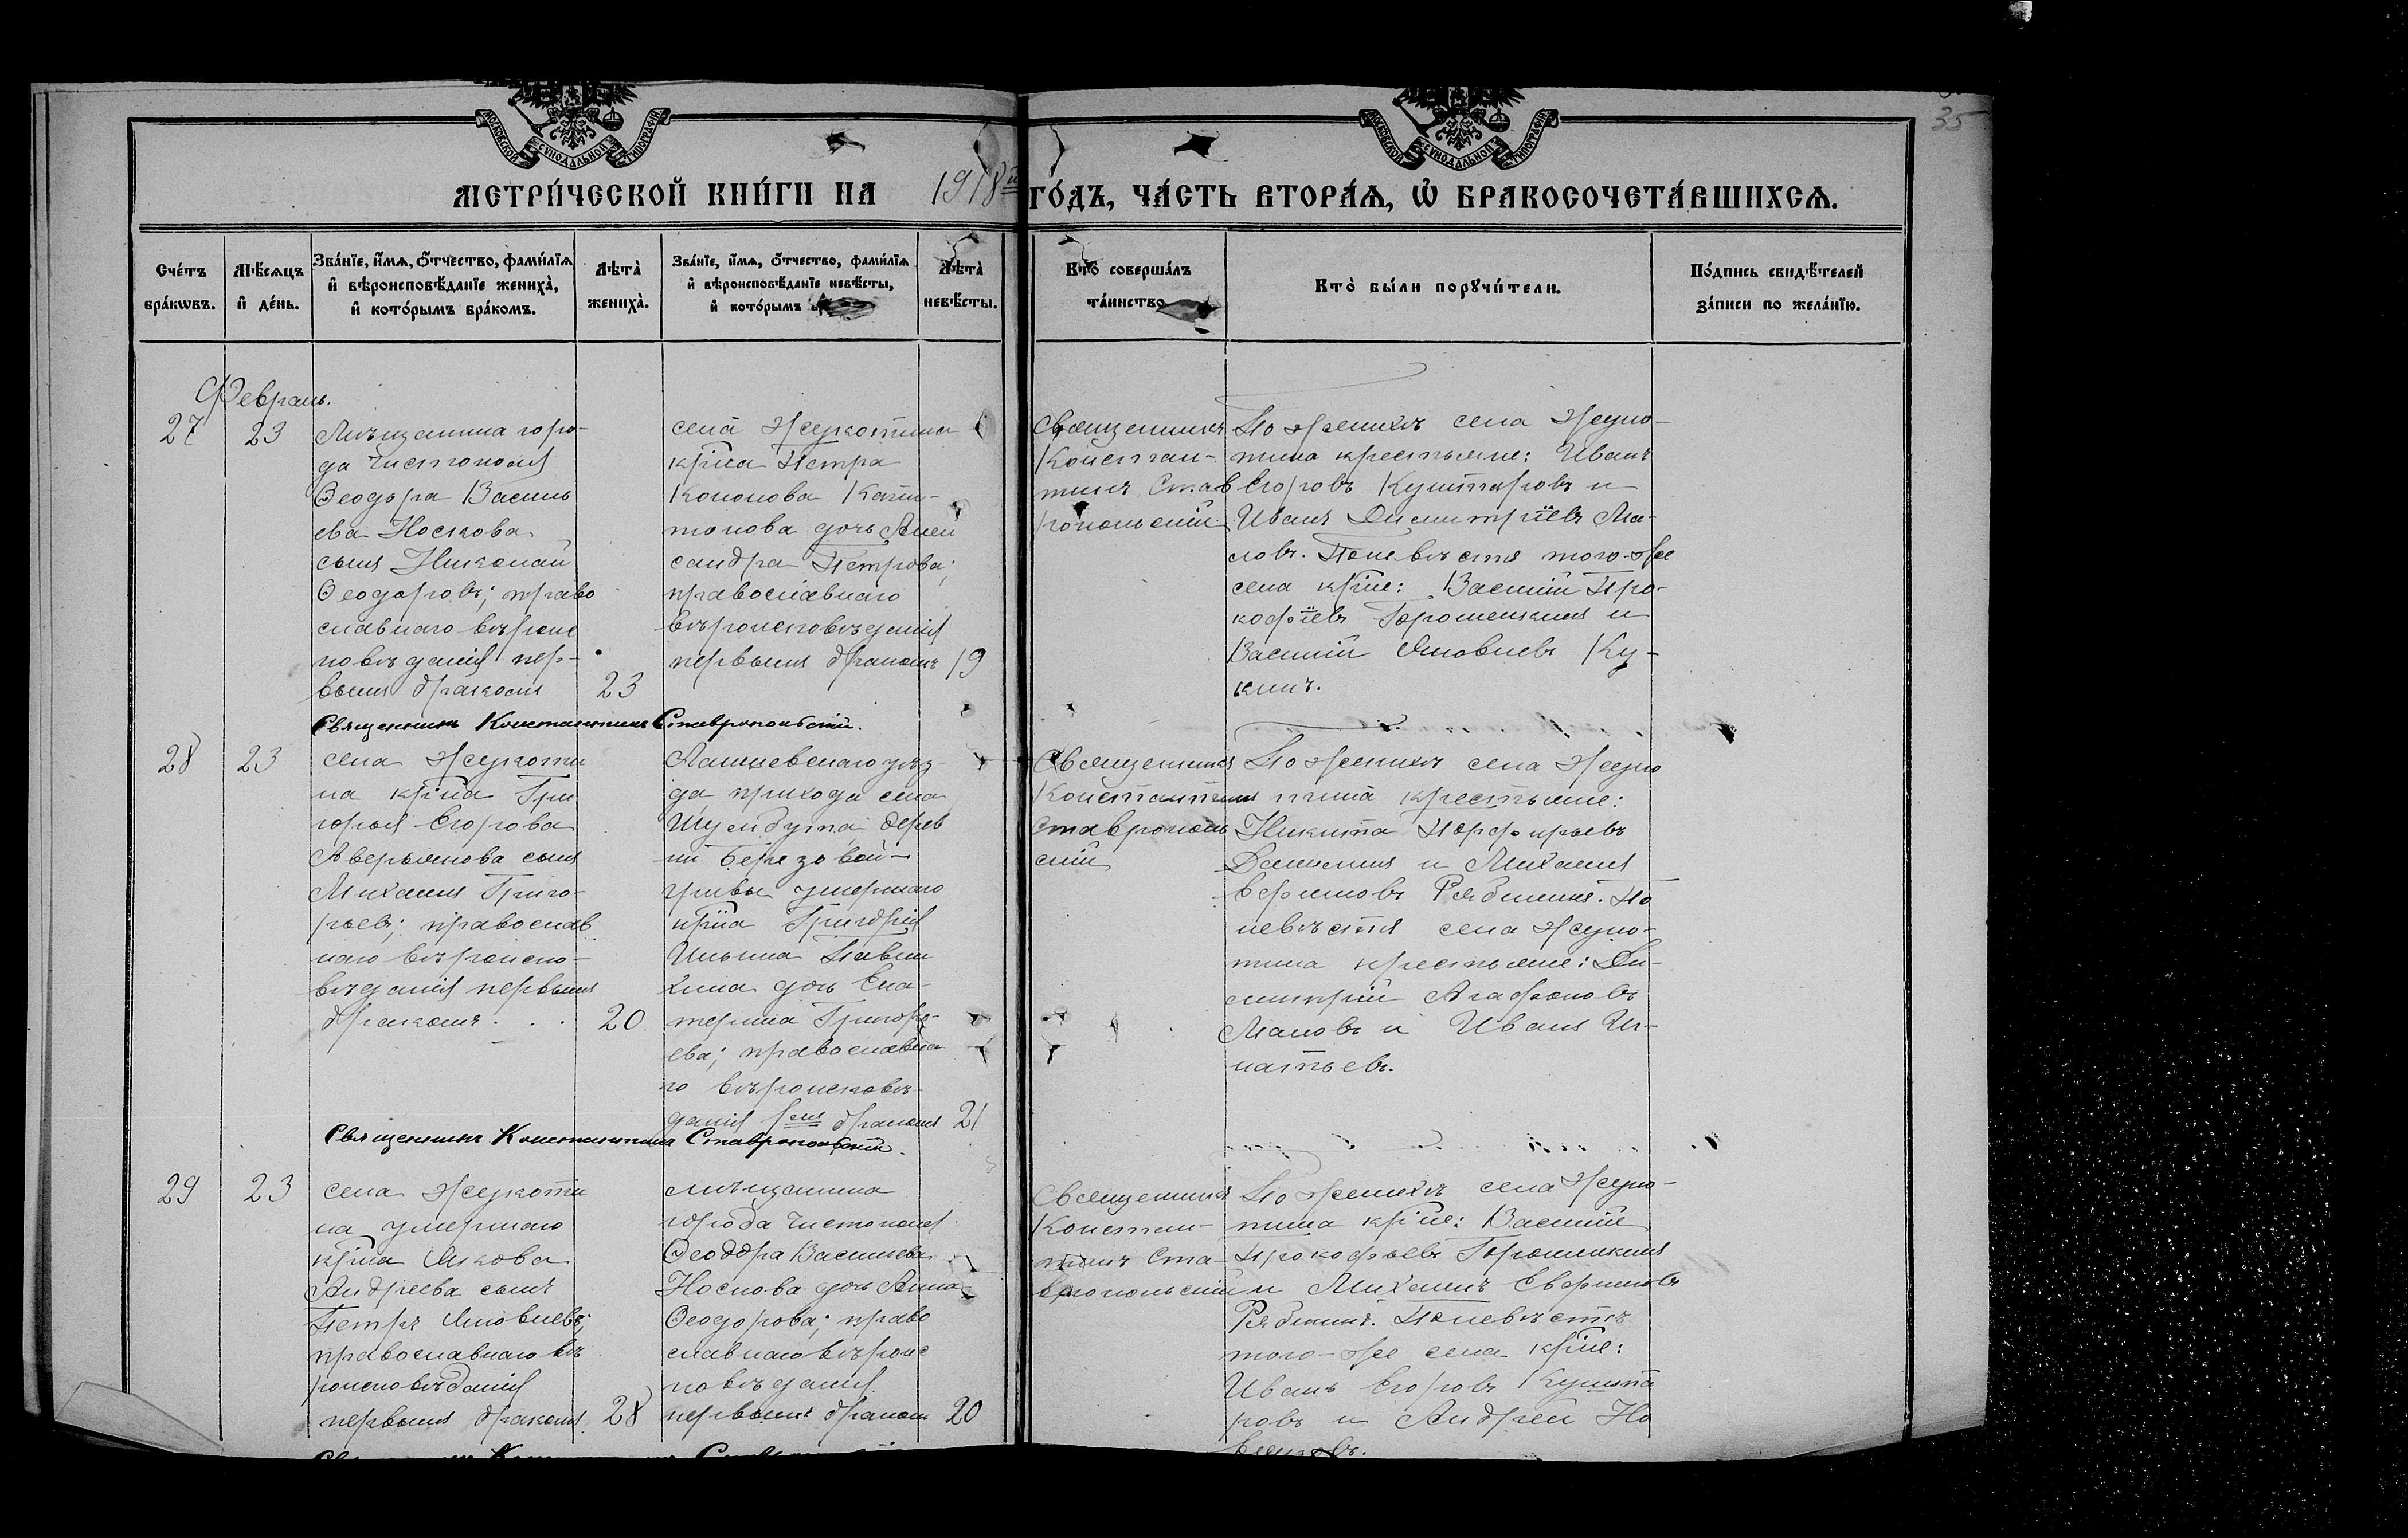 35
МОСКОВСКОЙ СУНОДАЛЬНОЙ ТИПОГРАФІИ
МОСКОВСКОЙ СУНОДАЛЬНОЙ ТИПОГРАФІИ
МЕТРИ́ЧЕСКОЙ КНИ́ГИ НА 1918й ГО́ДЪ, ЧА́СТЬ ВТОРА́Ѧ, Ѡ҆ БРАКОСОЧЕТА́ВШИХСѦ.
Сче́тъ бра́кѡвъ.
Мѣ́сѧцъ и҆ де́нь.
Зва́нїе, и҆́мѧ, ѻ҆́тчество, фами́лїѧ
и҆ вѣроисповѣ́данїе жениха̀,
и҆ кото́рымъ бра́комъ.
Лѣта̀ жениха̀.
Зва́нїе, и҆́мѧ, ѻ҆́тчество, фами́лїѧ
и҆ вѣроисповѣ́данїе невѣ́сты,
и҆ кото́рымъ
Лѣта̀ невѣ́сты.
Кто̀ соверша́лъ та́инство
Кто̀ бы́ли порꙋчи́тели.
По́дпись свидѣ́телей
за́писи по жела́нїю.
Февраль.
27
23
Мѣщанина горо-
да Чистополя
Ѳеодора Василь
ева Носкова
сынъ Николай
Ѳеодоровъ; право
славнаго вѣроис
повѣданія пер-
вымъ бракомъ
23
села Жукотина
кр̃на Петра
Кононова Капи-
тонова дочь Алек
сандра Петрова;
православнаго
вѣроисповѣданія
первымъ бракомъ
19
Священникъ
Констан-
тинъ Став
ропольскій
По женихѣ села Жуко-
тина крестьяне: Иванъ
Егоровъ Кушпаровъ и
Иванъ Димитріевъ Ма-
ловъ. По невѣстѣ того-же
села кр̃не: Василій Про-
кофіевъ Горошенкинъ и
Василій Яковлевъ Ку-
кинъ.
Священникъ Константинъ Ставропольскій.
28
23
села Жукоти
на кр̃на Гри
горья Егорова
Аверьянова сынъ
Михаилъ Григо-
рьев; православ
наго вѣроиспо-
вѣданія первымъ
бракомъ . . .
20
Лаишевскаго уѣз-
да прихода села
Шумбута дерев
ни Березовой-
гривы умершаго
кр̃на Григорія
Ильина
дочь Ека-
терина Григорь-
ева; православна
го вѣроисповѣ-
данія 1ымъ бракомъ
21
Священникъ
Константинъ
Ставрополь
скій
По женихѣ села Жуко
тина крестьяне:
Никита Порфирьевъ
и Михаилъ
Ефимовъ Рябинин. По
невѣстѣ села Жуко-
тина крестьяне: Ди-
митрій Агафоновъ
Маловъ и Иванъ Иг-
натьевъ.
Священникъ Константинъ Ставропольскій.
29
23
села Жукоти
на умершаго
кр̃на Якова
Андреева сынъ
Петръ Яковлевъ;
православнаго вѣ
роисповѣданія
первымъ бракомъ
28
мѣщанина
города Чистополя
Ѳеодора Васильева
Носкова дочь Анна
Ѳеодорова; право
славнаго вѣроис
повѣданія
первымъ браком
20
Священникъ
Констан-
тинъ Ста-
вропольскій
По женихѣ села Жуко-
тина кр̃не: Василій
Прокофьевъ Горошенкинъ
и Михаилъ Ефимовъ
Рябинин. По невѣстѣ
того-же села кр̃не:
Иванъ Егоровъ Кушпа
ровъ и Андрей Но